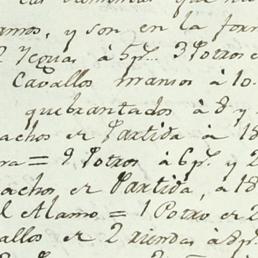 amos, y son en la form
2 Yeguas à 5p.s 3 Potros e
Cavallos mansos à 10.
quebrantados à 8 y
achos de Partida à 18
ra = 9 Potros à 6p.s y 2
achos de Partida, à 18
l Alamo, = 1 Potro de 2
allos de 2 riendas à 8p.s